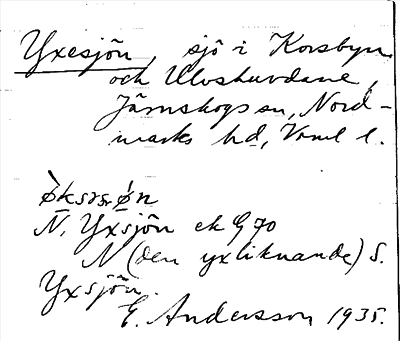 Yxesjön, sjö i Korsbyn
och Ulvshuvdane,
Järnskogs sn, Nord-
marks hd, Vrml l.
øksɜsøn
N. Yxsjön ek G 70
N (den yxliknande) S.
Yxsjön.
E. Andersson 1935.